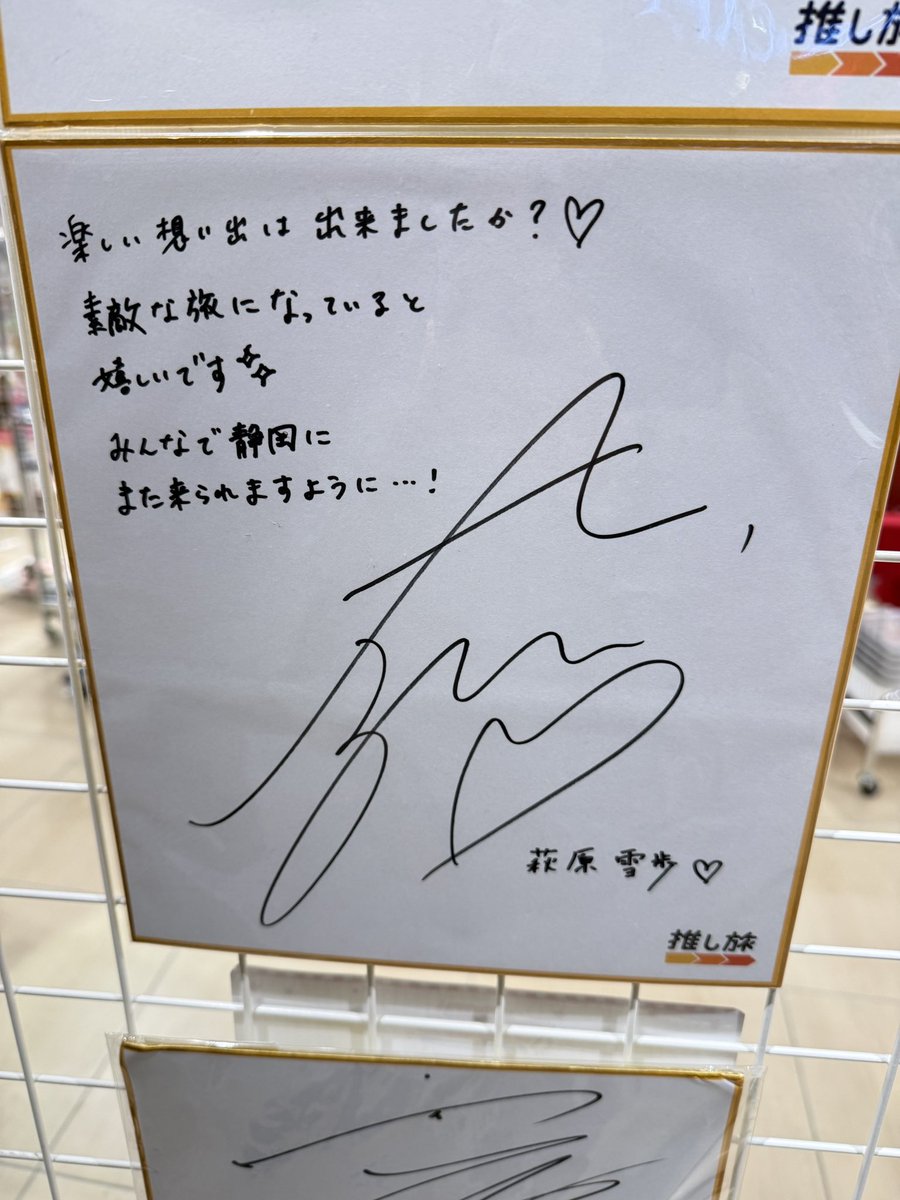 推し旅
楽しい想い出は出来ましたか？♡
素敵な旅になっていると
嬉しいです
みんなで静岡に
また来られますように…！
萩原雪歩♡
推し旅